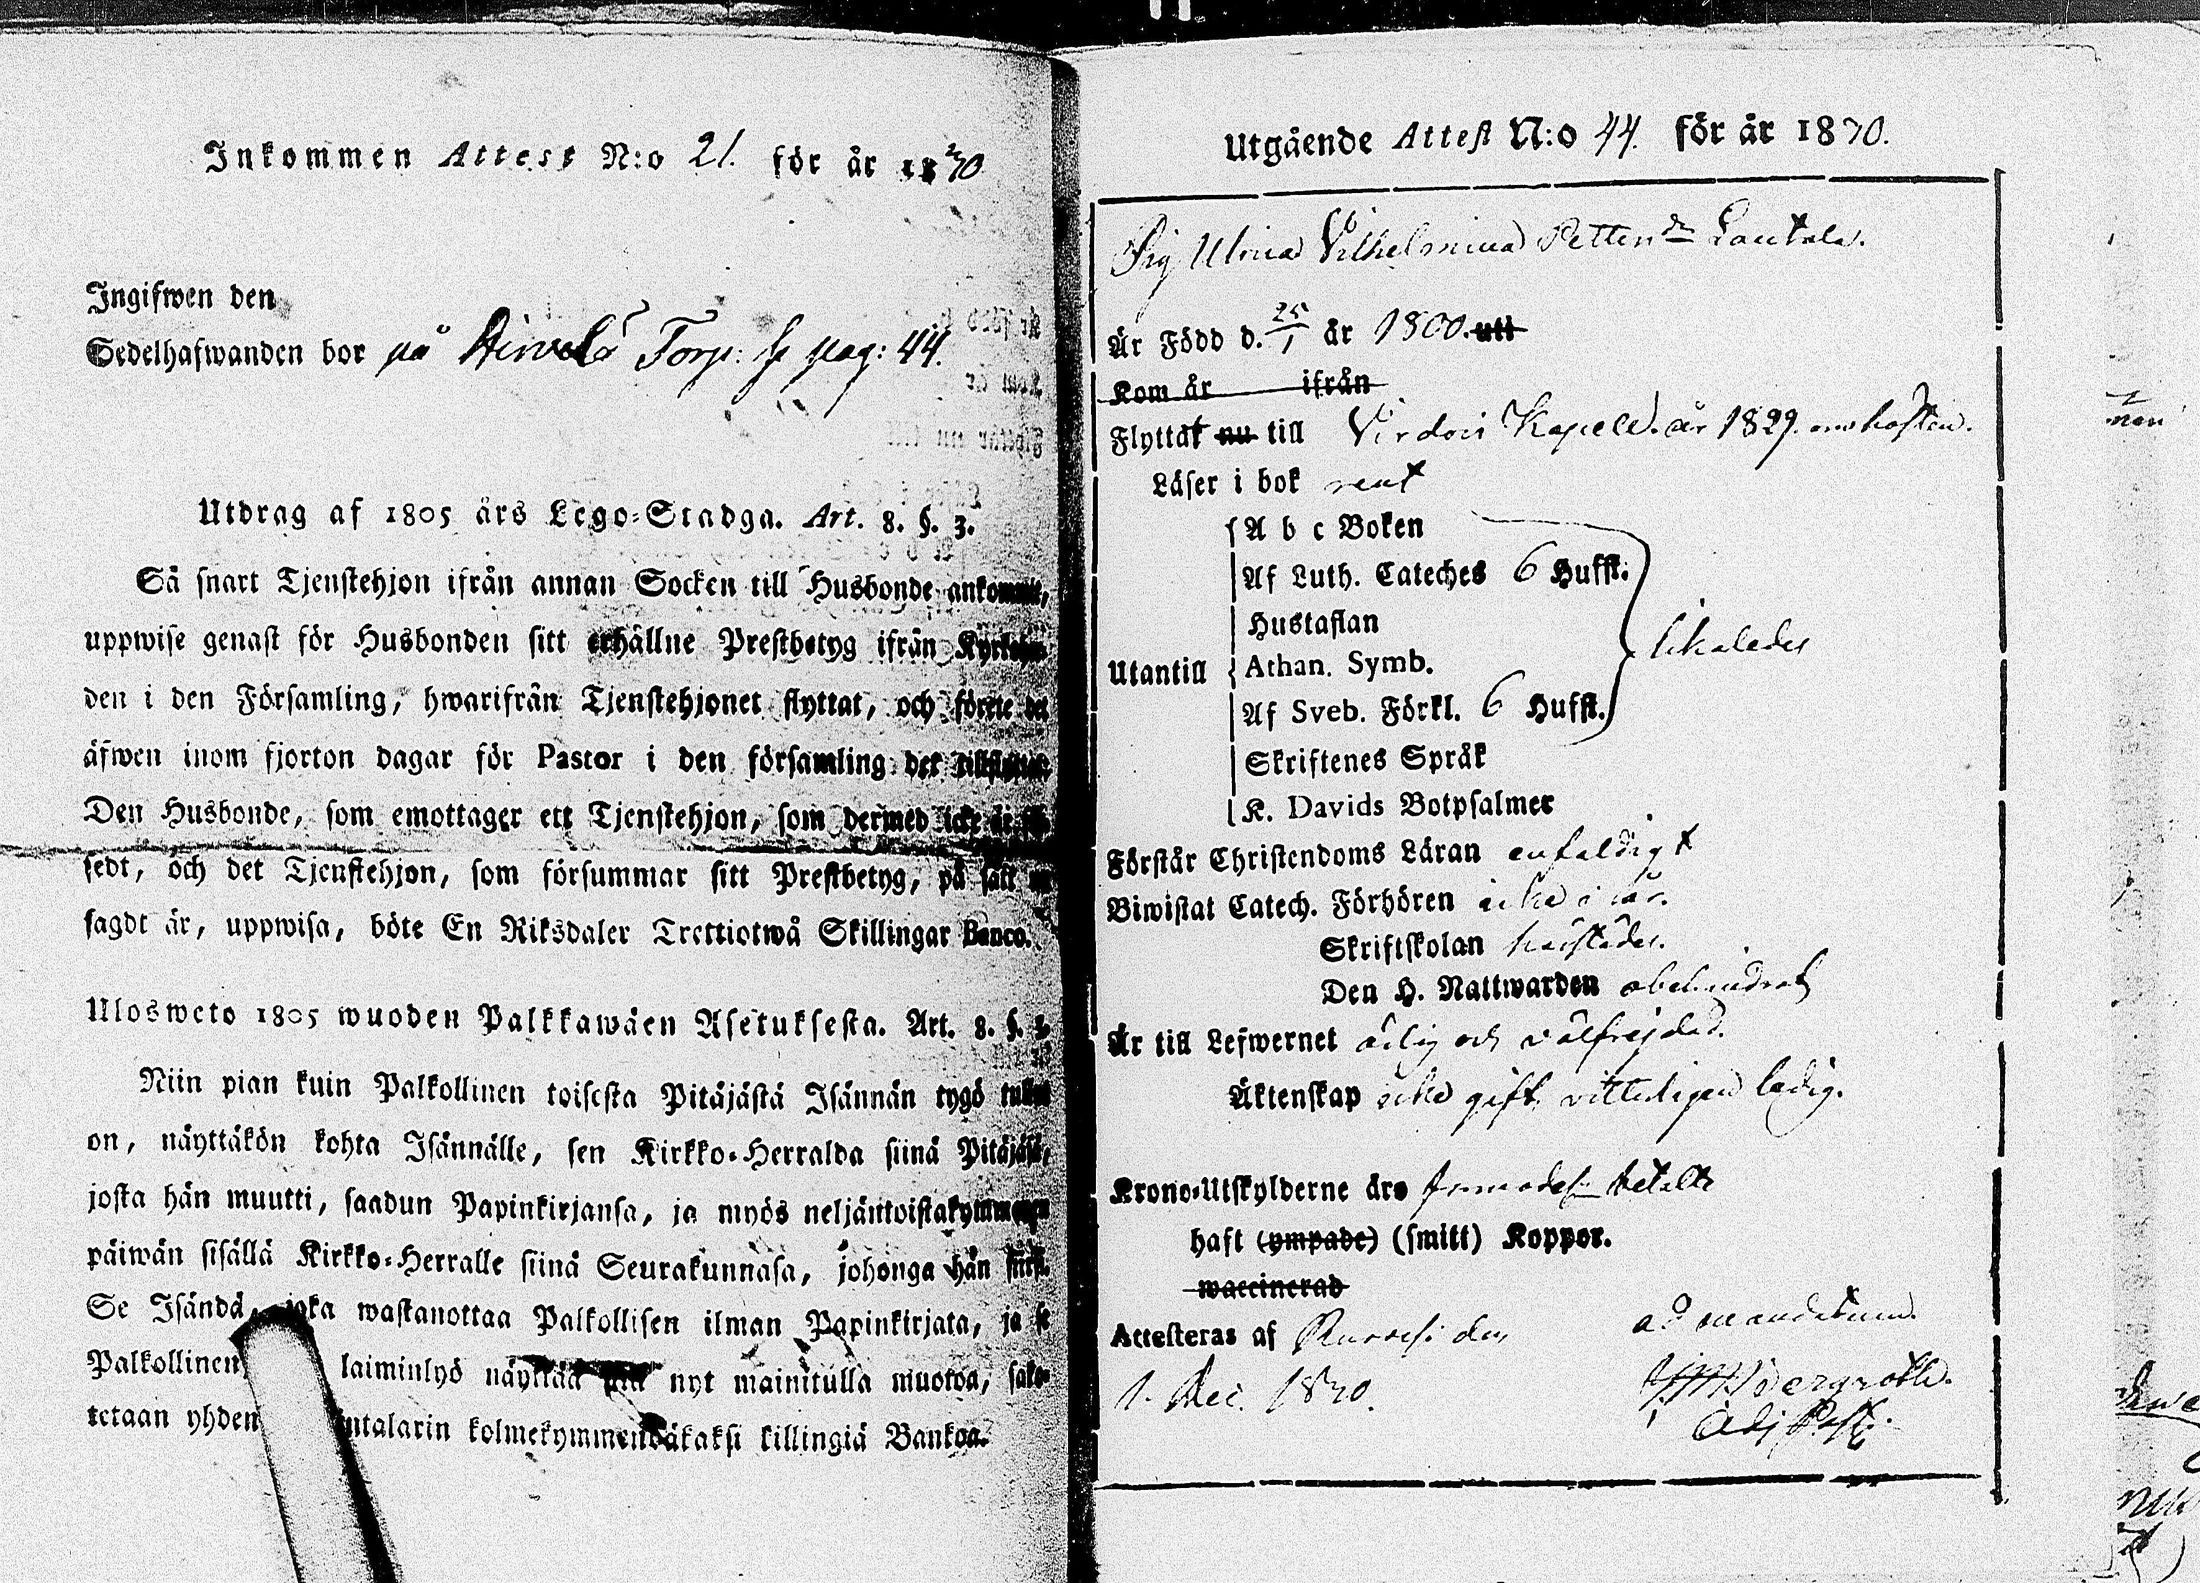 Inkommen Attest N:o 21. för år 1830
Ingifwen den
Sedelhafwanden bor på Torp. pag: 44.
Utdrag af 1805 års Lego-Stadga. Art. 8. §. 3.
Så snart Tjenstehjon ifrån annan Socken till Husbonde ankommit,
uppwise genast för Husbonden sitt erhållne Prestbetyg ifrån
den i den Församling, hwarifrån Tjenstehjonet flyttat, och förete det
äfwen inom fjorton dagar för Pastor i den församling det
Den Husbonde, som emottager ett Tjenstehjon, som dermed icke är
sedt, och det Tjenstehjon, som försummar sitt Prestbetyg, på sätt
sagdt är, uppwisa, böte En Riksdaler Trettiotwå Skillingar Banco.
Ulosweto 1805 wuoden Palkkawäen Asetuksesta. Art. 8. §. 3.
Niin pian kuin Palkollinen toisesta Pitäjästä Isännän tygö tullut
on, näyttäkön kohta Isännälle, sen Kirkko-Herralda siinä Pitäjäsä,
josta hän muutti, saadun Papinkirjansa, ja myös neljäntoistakymmenen
päiwän sisällä Kirkko-Herralle siinä Seurakunnasa, johonga hän
Se Isändä, joka wastanottaa Palkollisen ilman Papinkirjata, ja se
Palkollinen, laiminlyö näyttää nyt mainitulla muotoa, sako-
tetaan yhden kolmekymmendäkaksi killingiä Bankoa.
Utgående Attest N:o 44. för år 1830.
Pig Ulrica Vilhelmina Petters dr Lautala.
Är Född d. 25/1 år 1800. utt
Kom år ifrån
Flyttat nu till Virdois Kapell. år 1829. om hösten.
Läser i bok rent
A b c Boken
Af Luth. Cateches 6 Hufst.
Hustaflan
Utantill Athan. Symb. likaledes
Af Sveb. Förkl. 6 Hufst.
Skriftenes Språk
K. Davids Botpsalmer
Förstår Christendoms Läran enfaldigt
Biwistat Catech. Förhören icke i år.
Skriftskolan härstädes.
Den H. Nattwarden obehindrat
Är till Lefwernet ärlig och välfrejdad.
Äktenskap icke gift, vitterligen ledig.
Krono-Utskylderne äro förmodeln betalte
haft (ympade) (smitt) Koppor.
waccinerad
Attesteras af Ruovesi den ad mandatum.
1. Dec. 1830.
Adj. Past.